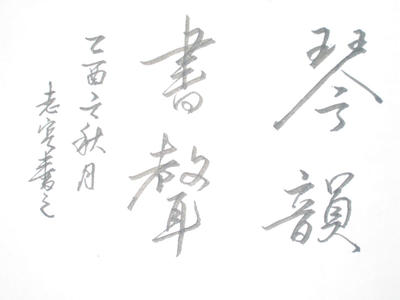 琴韻
書聲
乙酉之秋月
志宏書之